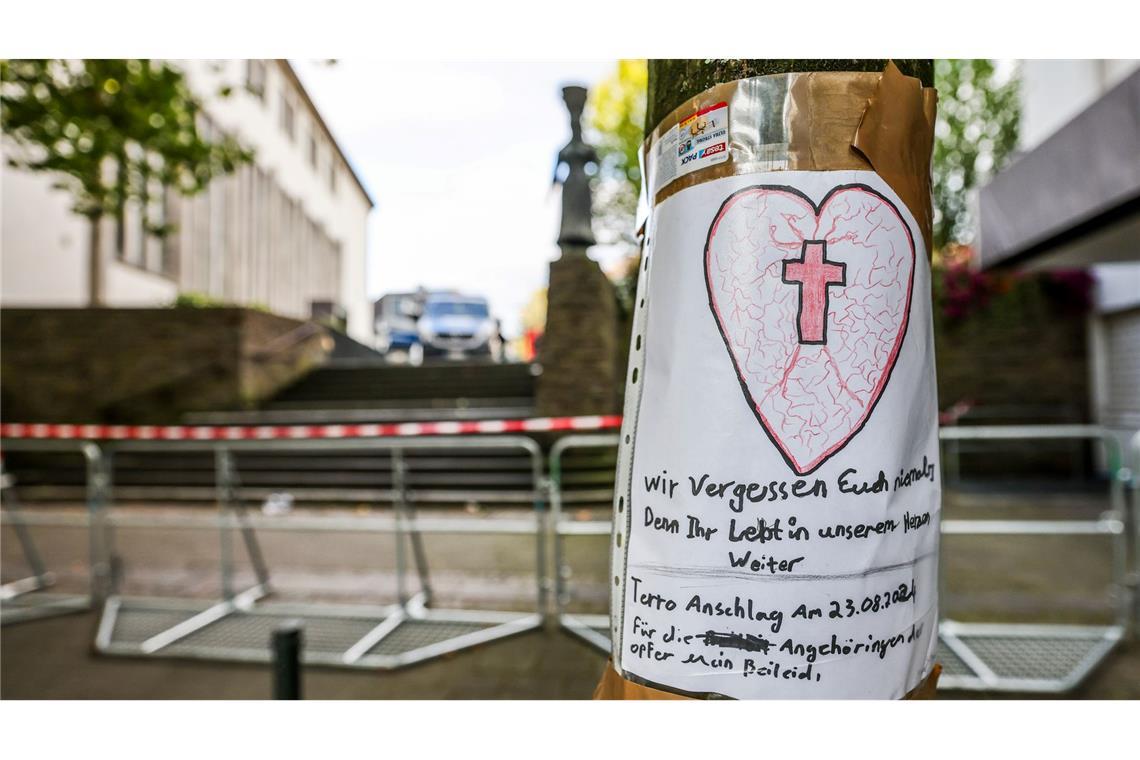 tesa PACK
wir Vergessen Euch niemals
Denn Ihr Lebt in unserem Herzen
Weiter
Terro Anschlag Am 23.08.2024
für die Angehöringen der
opfer mein Beileid.